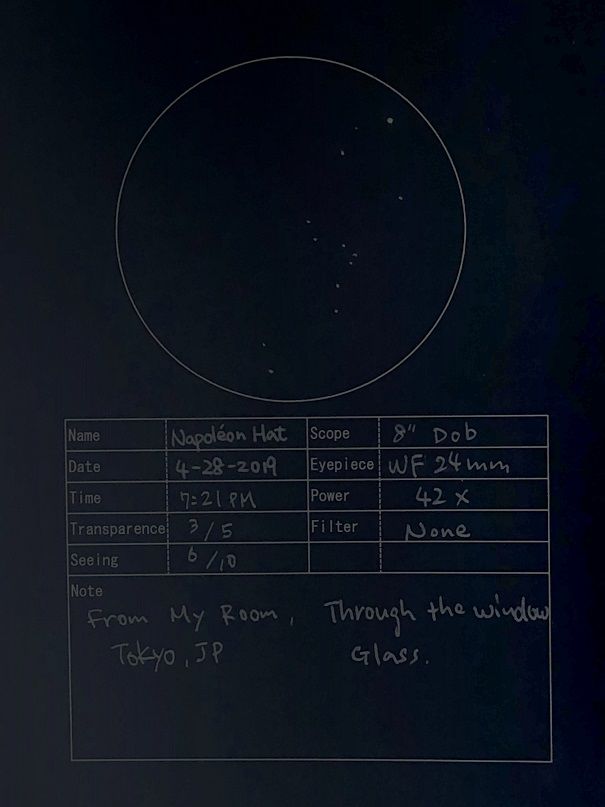 Name Napoléon Hat Scope 8" Dob
Date 4-28-2019 Eyepiece WF 24mm
Time 7:21 PM Power 42 x
Transparence 3/5 Filter None
Seeing 6/10
Note
From My Room, Through the window
Tokyo, JP Glass.